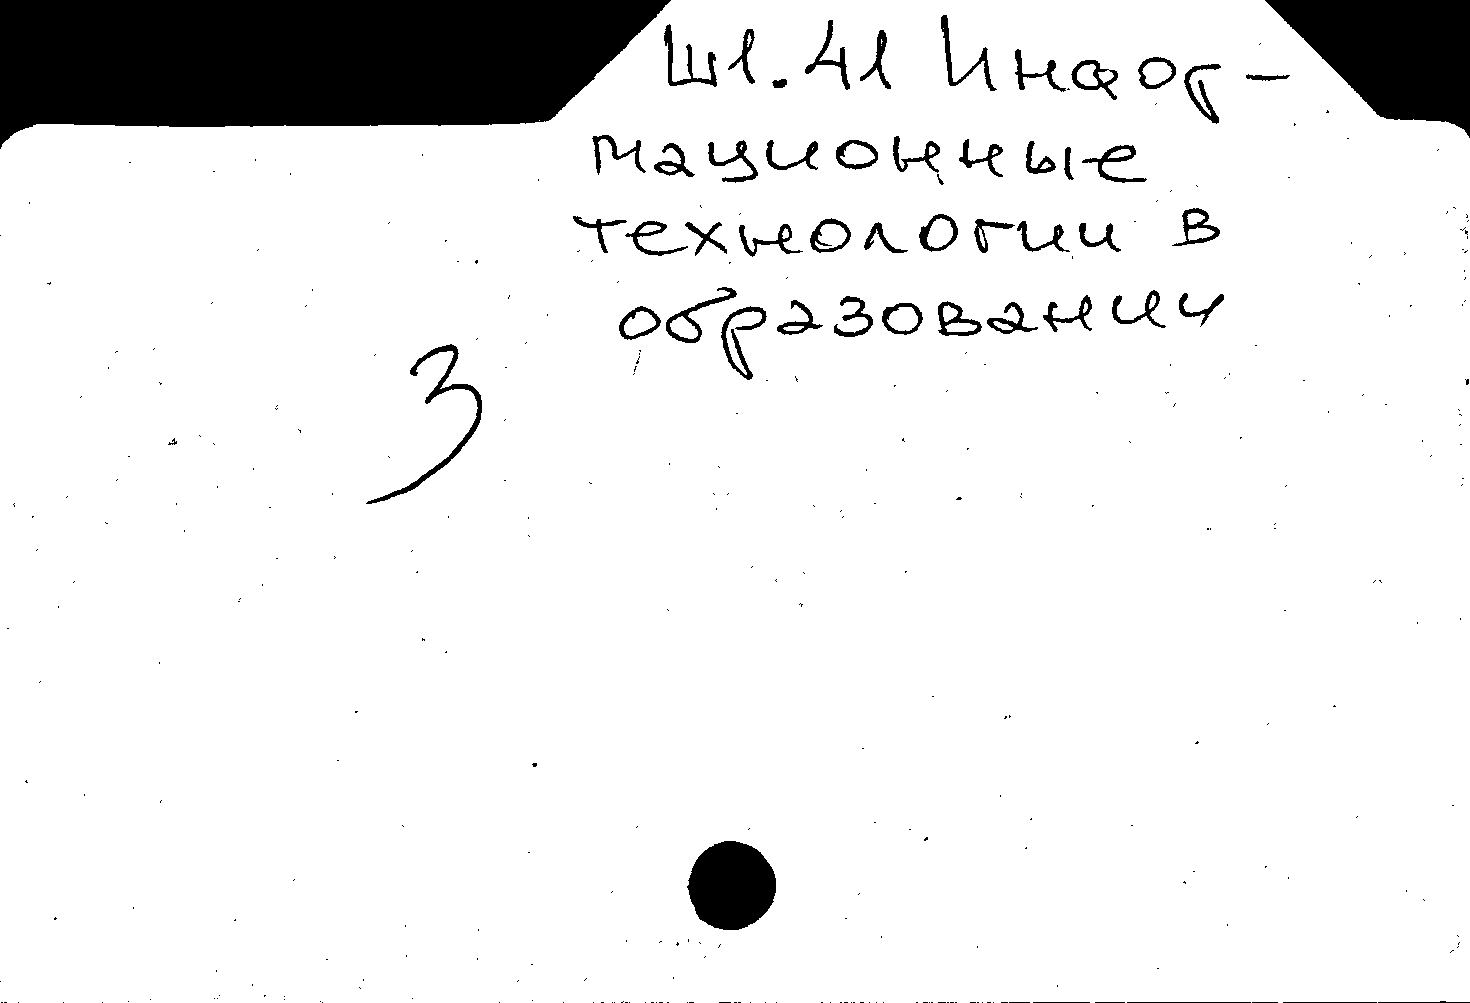 Ш1.41 Инфор-
мационные
технологии в
образовании
3